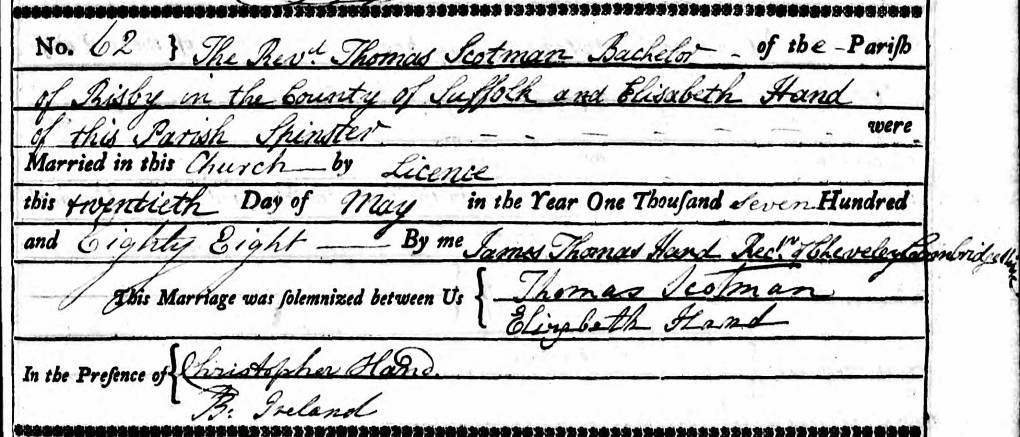 No. 62 } The Revd. Thomas Scotman Bachelor - of the - Pariſh
of Risby in the County of Suffolk and Elisabeth Hand
of this Parish Spinster - - - - - - - - were
Married in this Church — by Licence
this twentieth Day of May in the Year One Thouſand Seven Hundred
and Eighty Eight — By me James Thomas Hand Recr. of Cheveley Cambridgeshire
This Marriage was ſolemnized between Us { Thomas Scotman
Elizabeth Hand
In the Preſence of { Christopher Hand.
B: Ireland